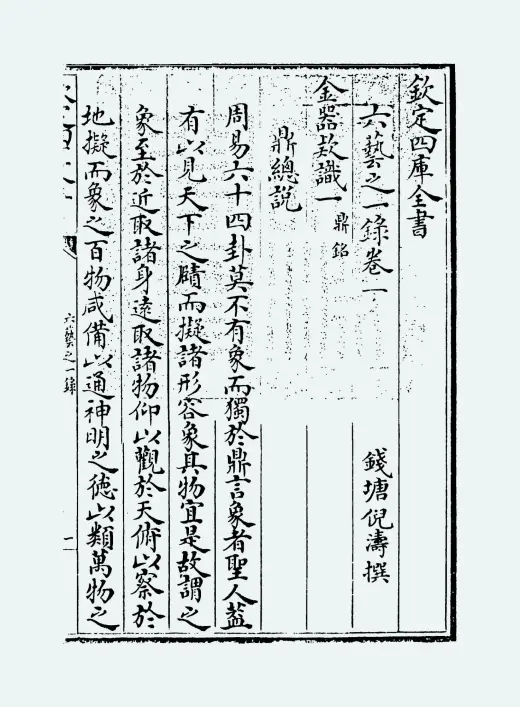 欽定四庫全書
六藝之一錄卷一
錢塘倪濤撰
金器款識一
鼎銘
鼎總說
周易六十四卦莫不有象而獨於鼎言象者聖人蓋
有以見天下之賾而擬諸形容象其物宜是故謂之
象至於近取諸身遠取諸物仰以觀於天俯以察於
地擬而象之百物咸備以通神明之德以類萬物之
六藝之一錄
一